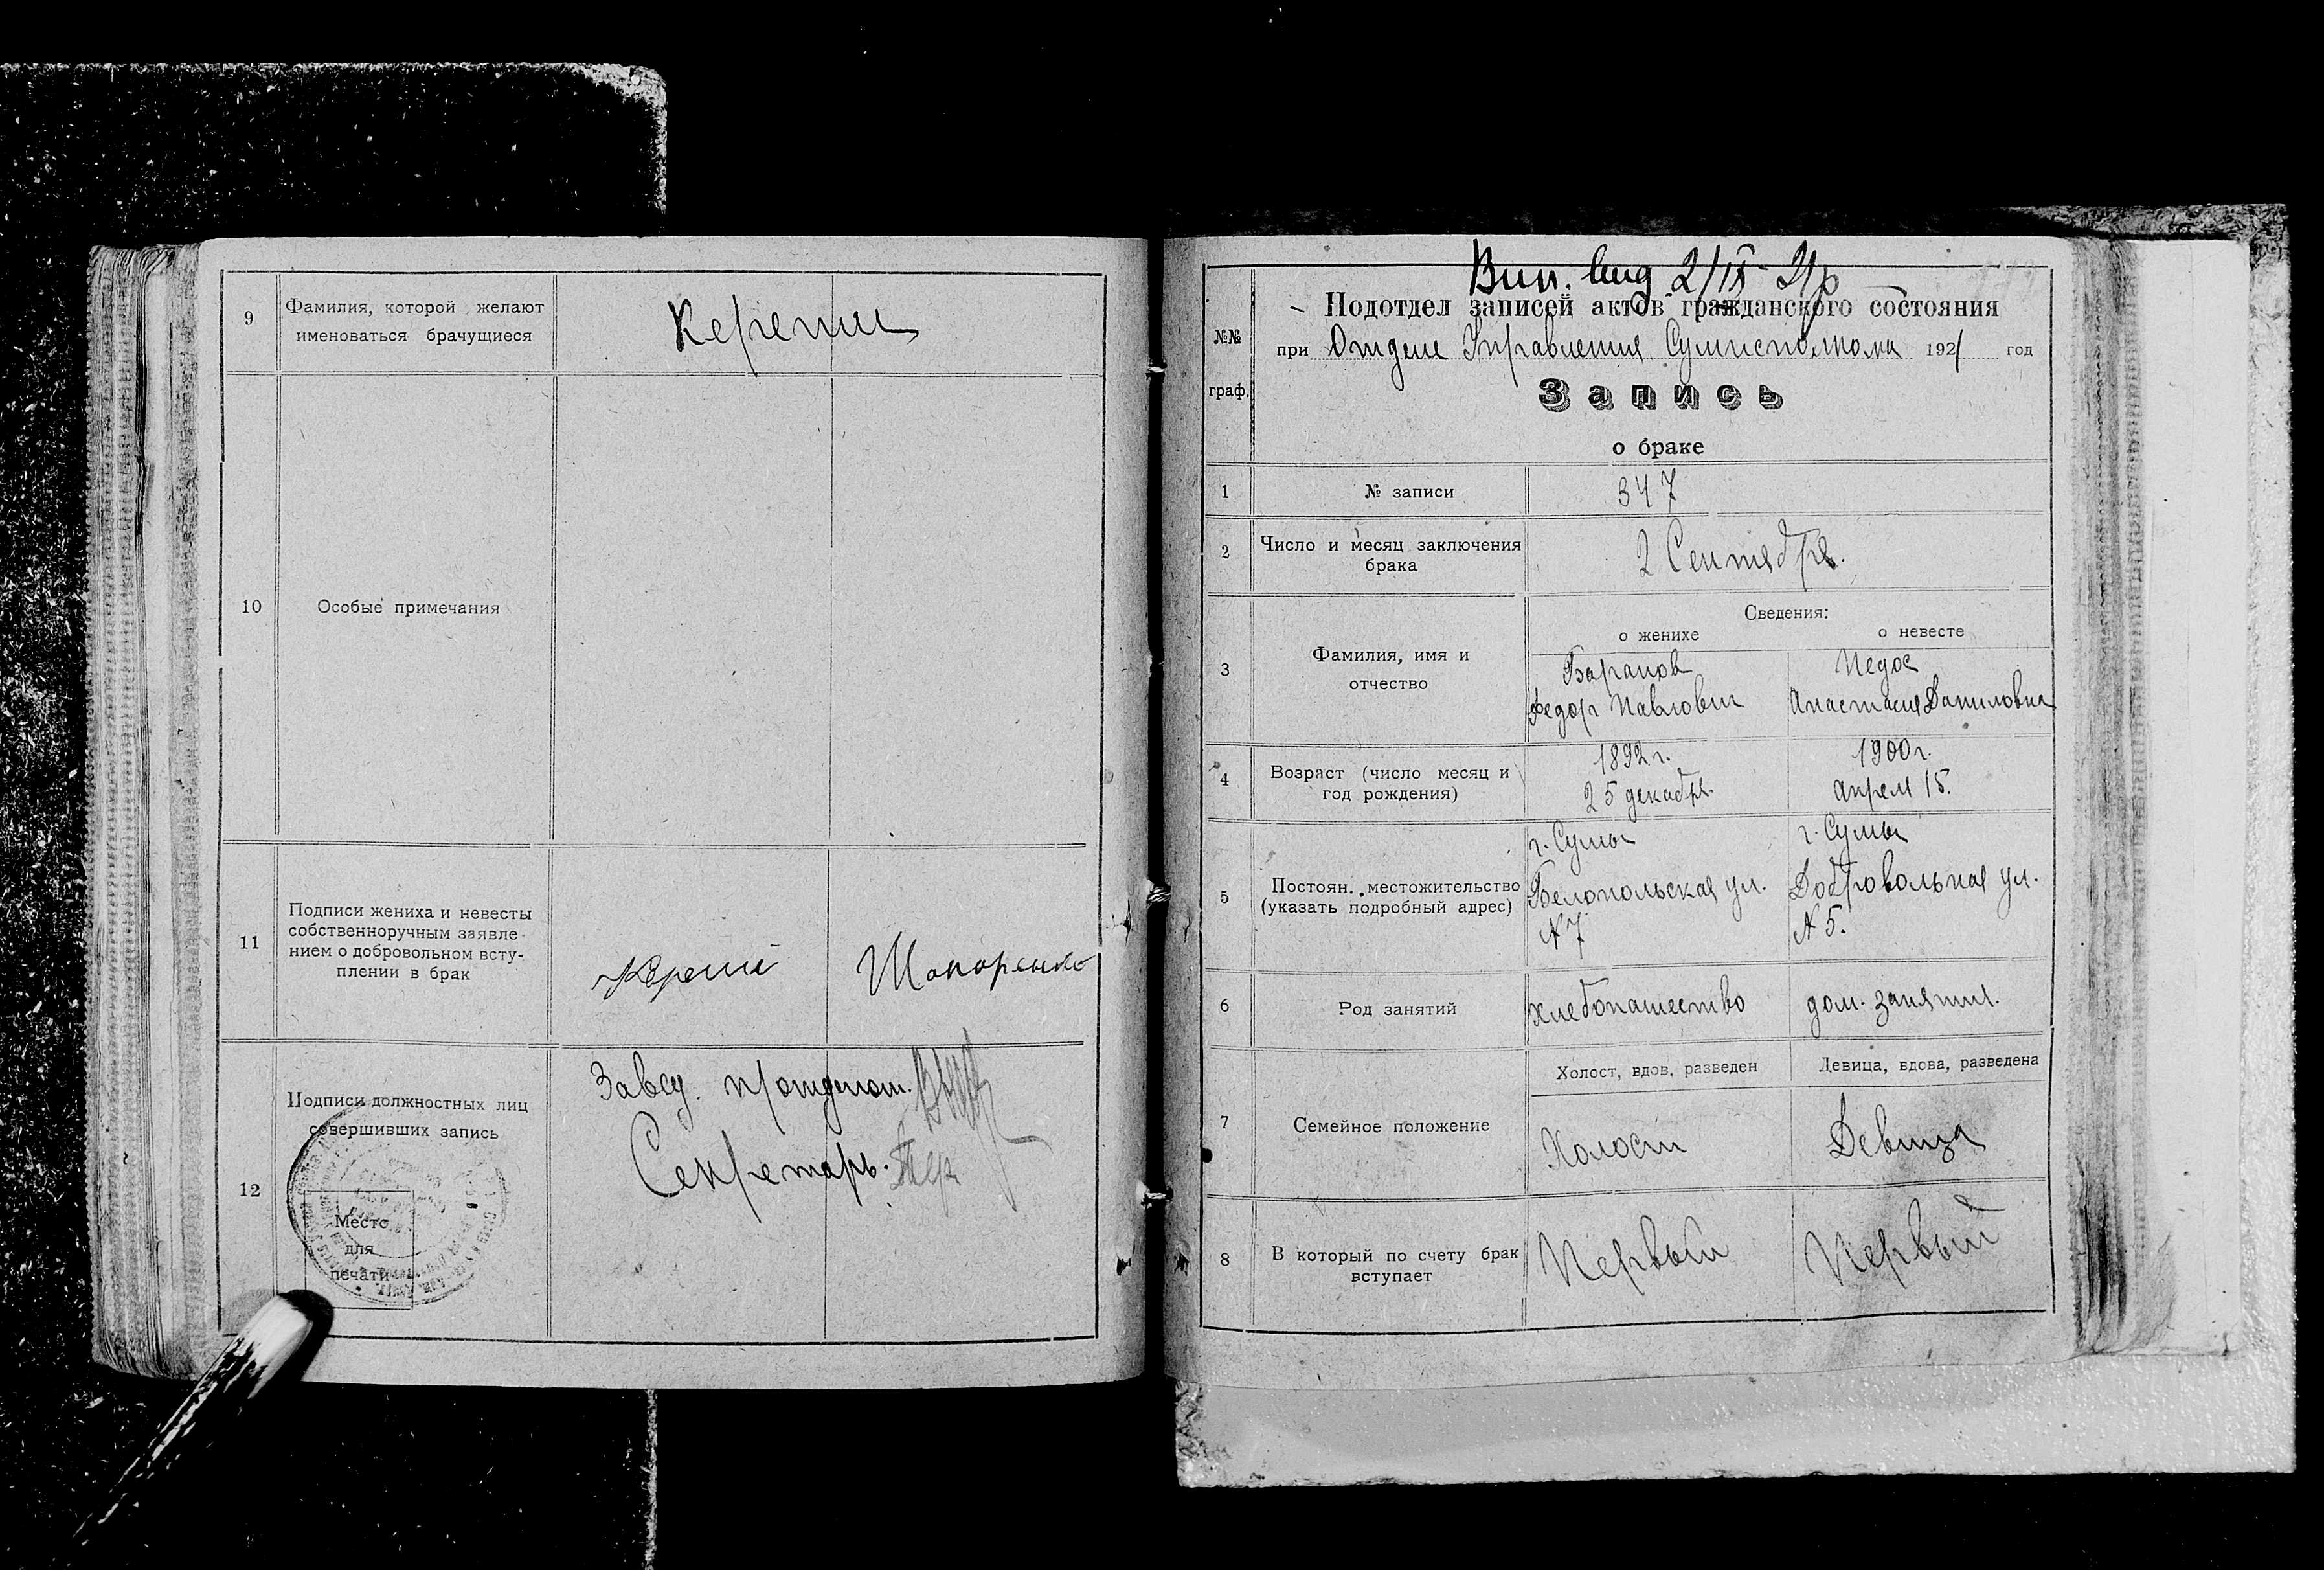 9
Фамилия, которой желают
именоваться брачущиеся
10
Особые примечания
11
Подписи жениха и невесты
собственноручным заявле-
нием о добровольном всту-
плении в брак
Шапоренко
12
Подписи должностных лиц
совершивших запись
Место
для
печати
Завед.
Секретарь.
2/IX 21р
Подотдел записей актов гражданского состояния
№№
граф.
при Отделе Управления Сумисполкома 1921 год
Запись
о браке
1
№ записи
347
2
Число и месяц заключения
брака
2 Сентября.
Сведения:
о женихе
о невесте
3
Фамилия, имя и
отчество
Баранов
Федор Павлович
Недос
Анастасия Даниловна
4
Возраст (число месяц и
год рождения)
1892 г.
25 декабря.
1900 г.
апреля 15.
5
Постоян. местожительство
(указать подробный адрес)
г. Сумы
Белопольская ул.
№ 7
г. Сумы
Добровольная ул.
№ 5.
6
Род занятий
хлебопашество
дом. занятия.
7
Семейное положение
Холост, вдов, разведен
Девица, вдова, разведена
Холост
Девица
8
В который по счету брак
вступает
Первый
Первый